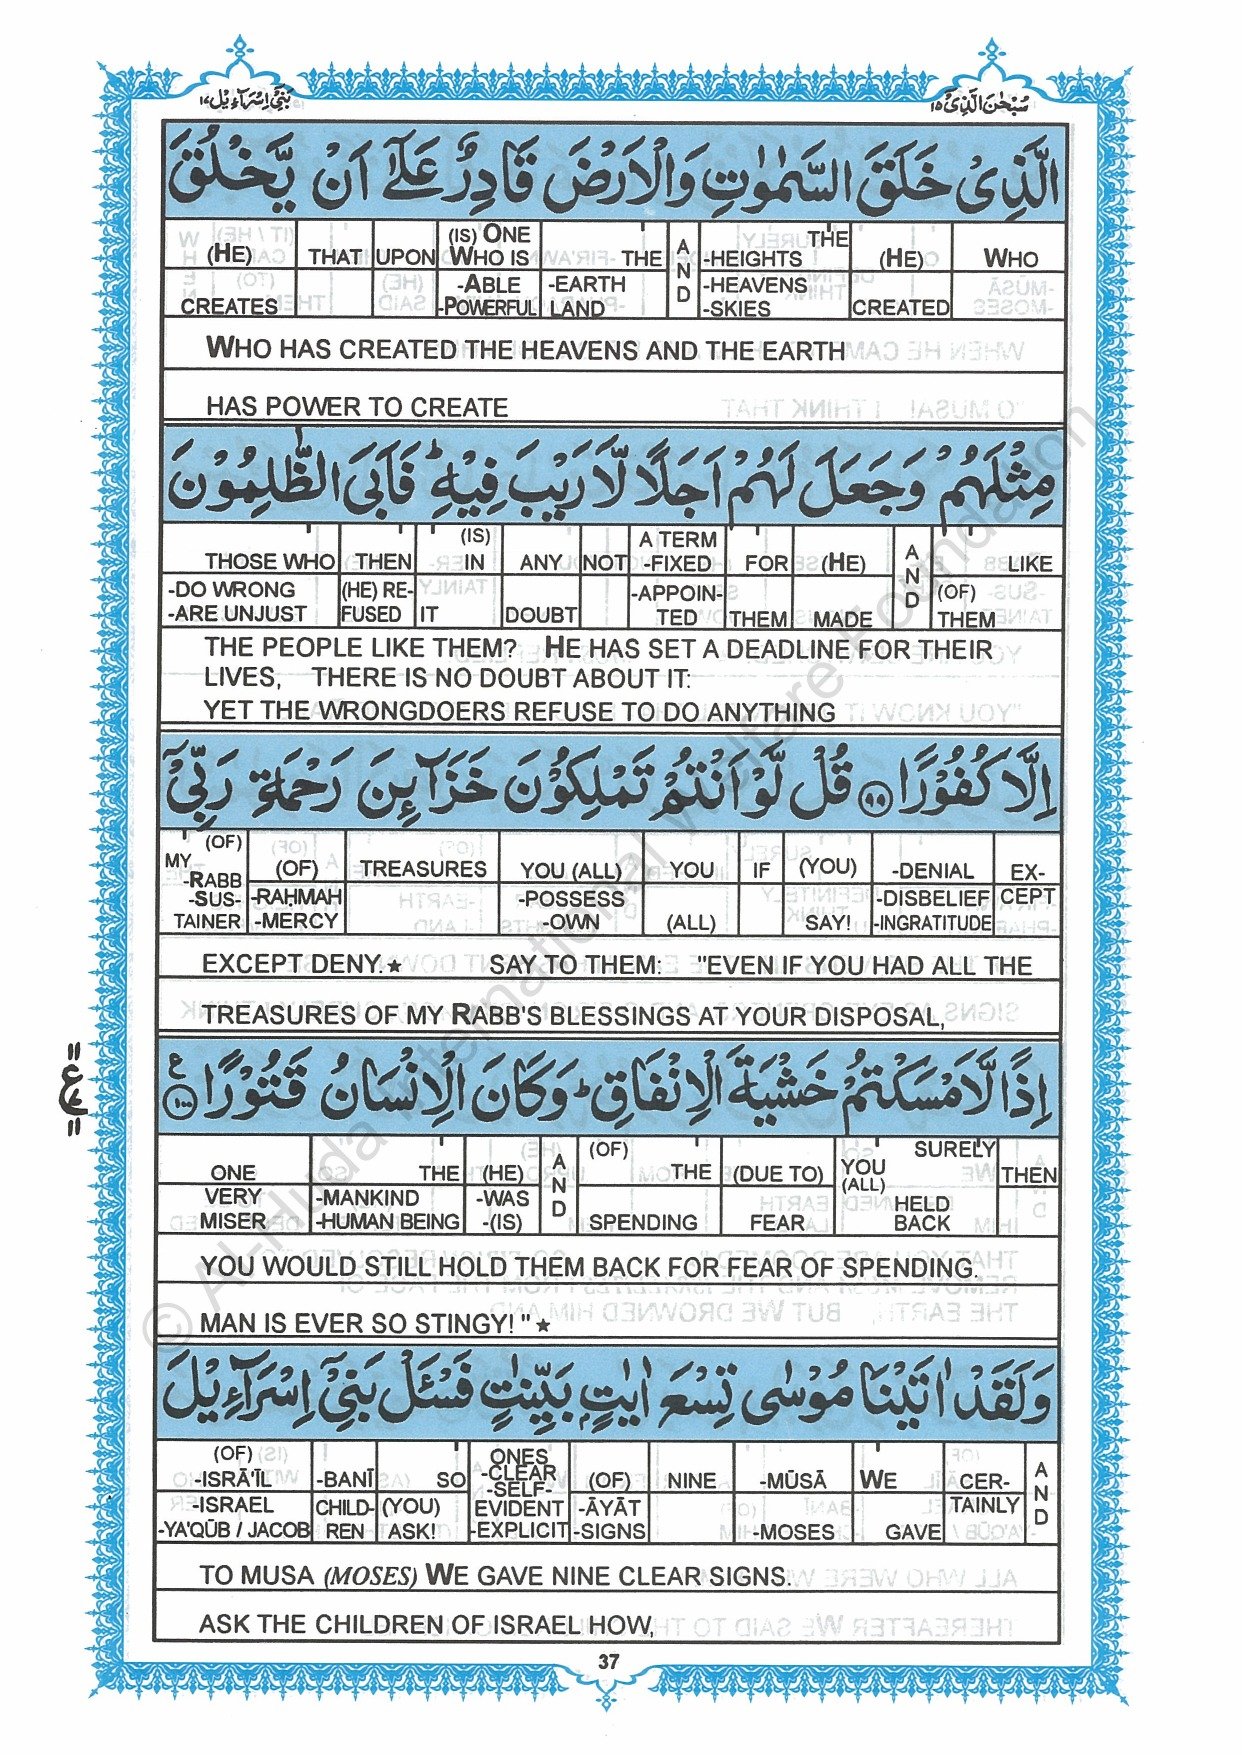 بَنِيْٓ اِسْرَآءِيْل ١٧
سُبْحٰنَ الَّذِيْٓ ١٥
الَّذِيْ خَلَقَ السَّمٰوٰتِ وَالْاَرْضَ قَادِرٌ عَلٰٓى اَنْ يَّخْلُقَ
WHO | (HE) CREATED | THE -HEIGHTS -HEAVENS -SKIES | AND | THE -EARTH LAND | (IS) ONE WHO IS -ABLE -POWERFUL | UPON | THAT | (HE) CREATES
WHO HAS CREATED THE HEAVENS AND THE EARTH
HAS POWER TO CREATE
مِثْلَهُمْ وَجَعَلَ لَهُمْ اَجَلًا لَّا رَيْبَ فِيْهِ ؕ فَاَبَى الظّٰلِمُوْنَ
LIKE (OF) THEM | AND | (HE) MADE | FOR THEM | A TERM -FIXED -APPOIN-TED | NOT | ANY DOUBT | (IS) IN IT | THEN (HE) RE-FUSED | THOSE WHO -DO WRONG -ARE UNJUST
THE PEOPLE LIKE THEM? HE HAS SET A DEADLINE FOR THEIR
LIVES, THERE IS NO DOUBT ABOUT IT:
YET THE WRONGDOERS REFUSE TO DO ANYTHING
اِلَّا كُفُوْرًا ﴿٩٩﴾ قُلْ لَّوْ اَنْتُمْ تَمْلِكُوْنَ خَزَآئِنَ رَحْمَةِ رَبِّيْٓ
EX-CEPT | -DENIAL -DISBELIEF -INGRATITUDE | (YOU) SAY! | IF | YOU (ALL) | YOU (ALL) -POSSESS -OWN | TREASURES | (OF) -RAḤMAH -MERCY | (OF) MY -RABB -SUS-TAINER
EXCEPT DENY.★ SAY TO THEM: "EVEN IF YOU HAD ALL THE
TREASURES OF MY RABB'S BLESSINGS AT YOUR DISPOSAL,
اِذًا لَّاَمْسَكْتُمْ خَشْيَةَ الْاِنْفَاقِ ؕ وَكَانَ الْاِنْسَانُ قَتُوْرًا ﴿١٠٠﴾ ع
THEN | SURELY YOU (ALL) HELD BACK | (DUE TO) FEAR | (OF) THE SPENDING | AND | (HE) -WAS -(IS) | THE -MANKIND -HUMAN BEING | ONE VERY MISER
YOU WOULD STILL HOLD THEM BACK FOR FEAR OF SPENDING.
MAN IS EVER SO STINGY! "★
وَلَقَدْ اٰتَيْنَا مُوْسٰى تِسْعَ اٰيٰتٍۭ بَيِّنٰتٍ فَسْـَٔلْ بَنِيْٓ اِسْرَآءِيْلَ
AND | CER-TAINLY | WE GAVE | -MŪSĀ -MOSES | NINE | (OF) -ĀYĀT -SIGNS | ONES -CLEAR -SELF-EVIDENT -EXPLICIT | SO (YOU) ASK! | -BANĪ CHILD-REN | (OF) -ISRĀ'ĪL -ISRAEL -YA'QŪB / JACOB
TO MUSA (MOSES) WE GAVE NINE CLEAR SIGNS.
ASK THE CHILDREN OF ISRAEL HOW,
37
© Al-Huda International Welfare Foundation